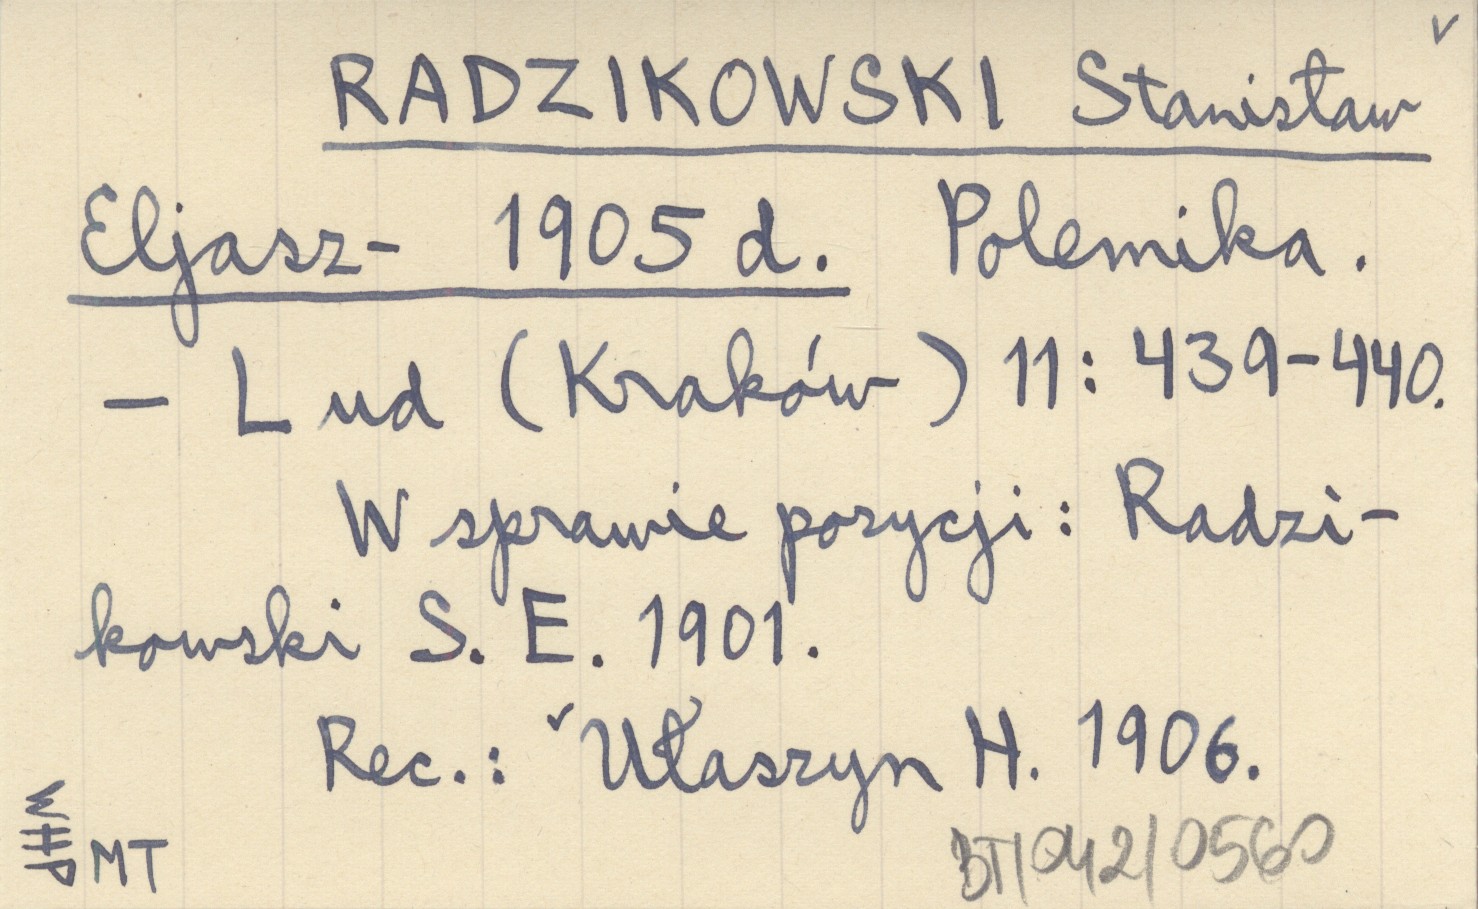 RADZIKOWSKI Stanisław
Eljasz- 1905 d. Polemika.
– Lud (Kraków) 11: 439–440.
W sprawie pozycji: Radzi-
kowski S. E. 1901.
Rec.: Ułaszyn H. 1906.
WHP
MT
BT/042/0560